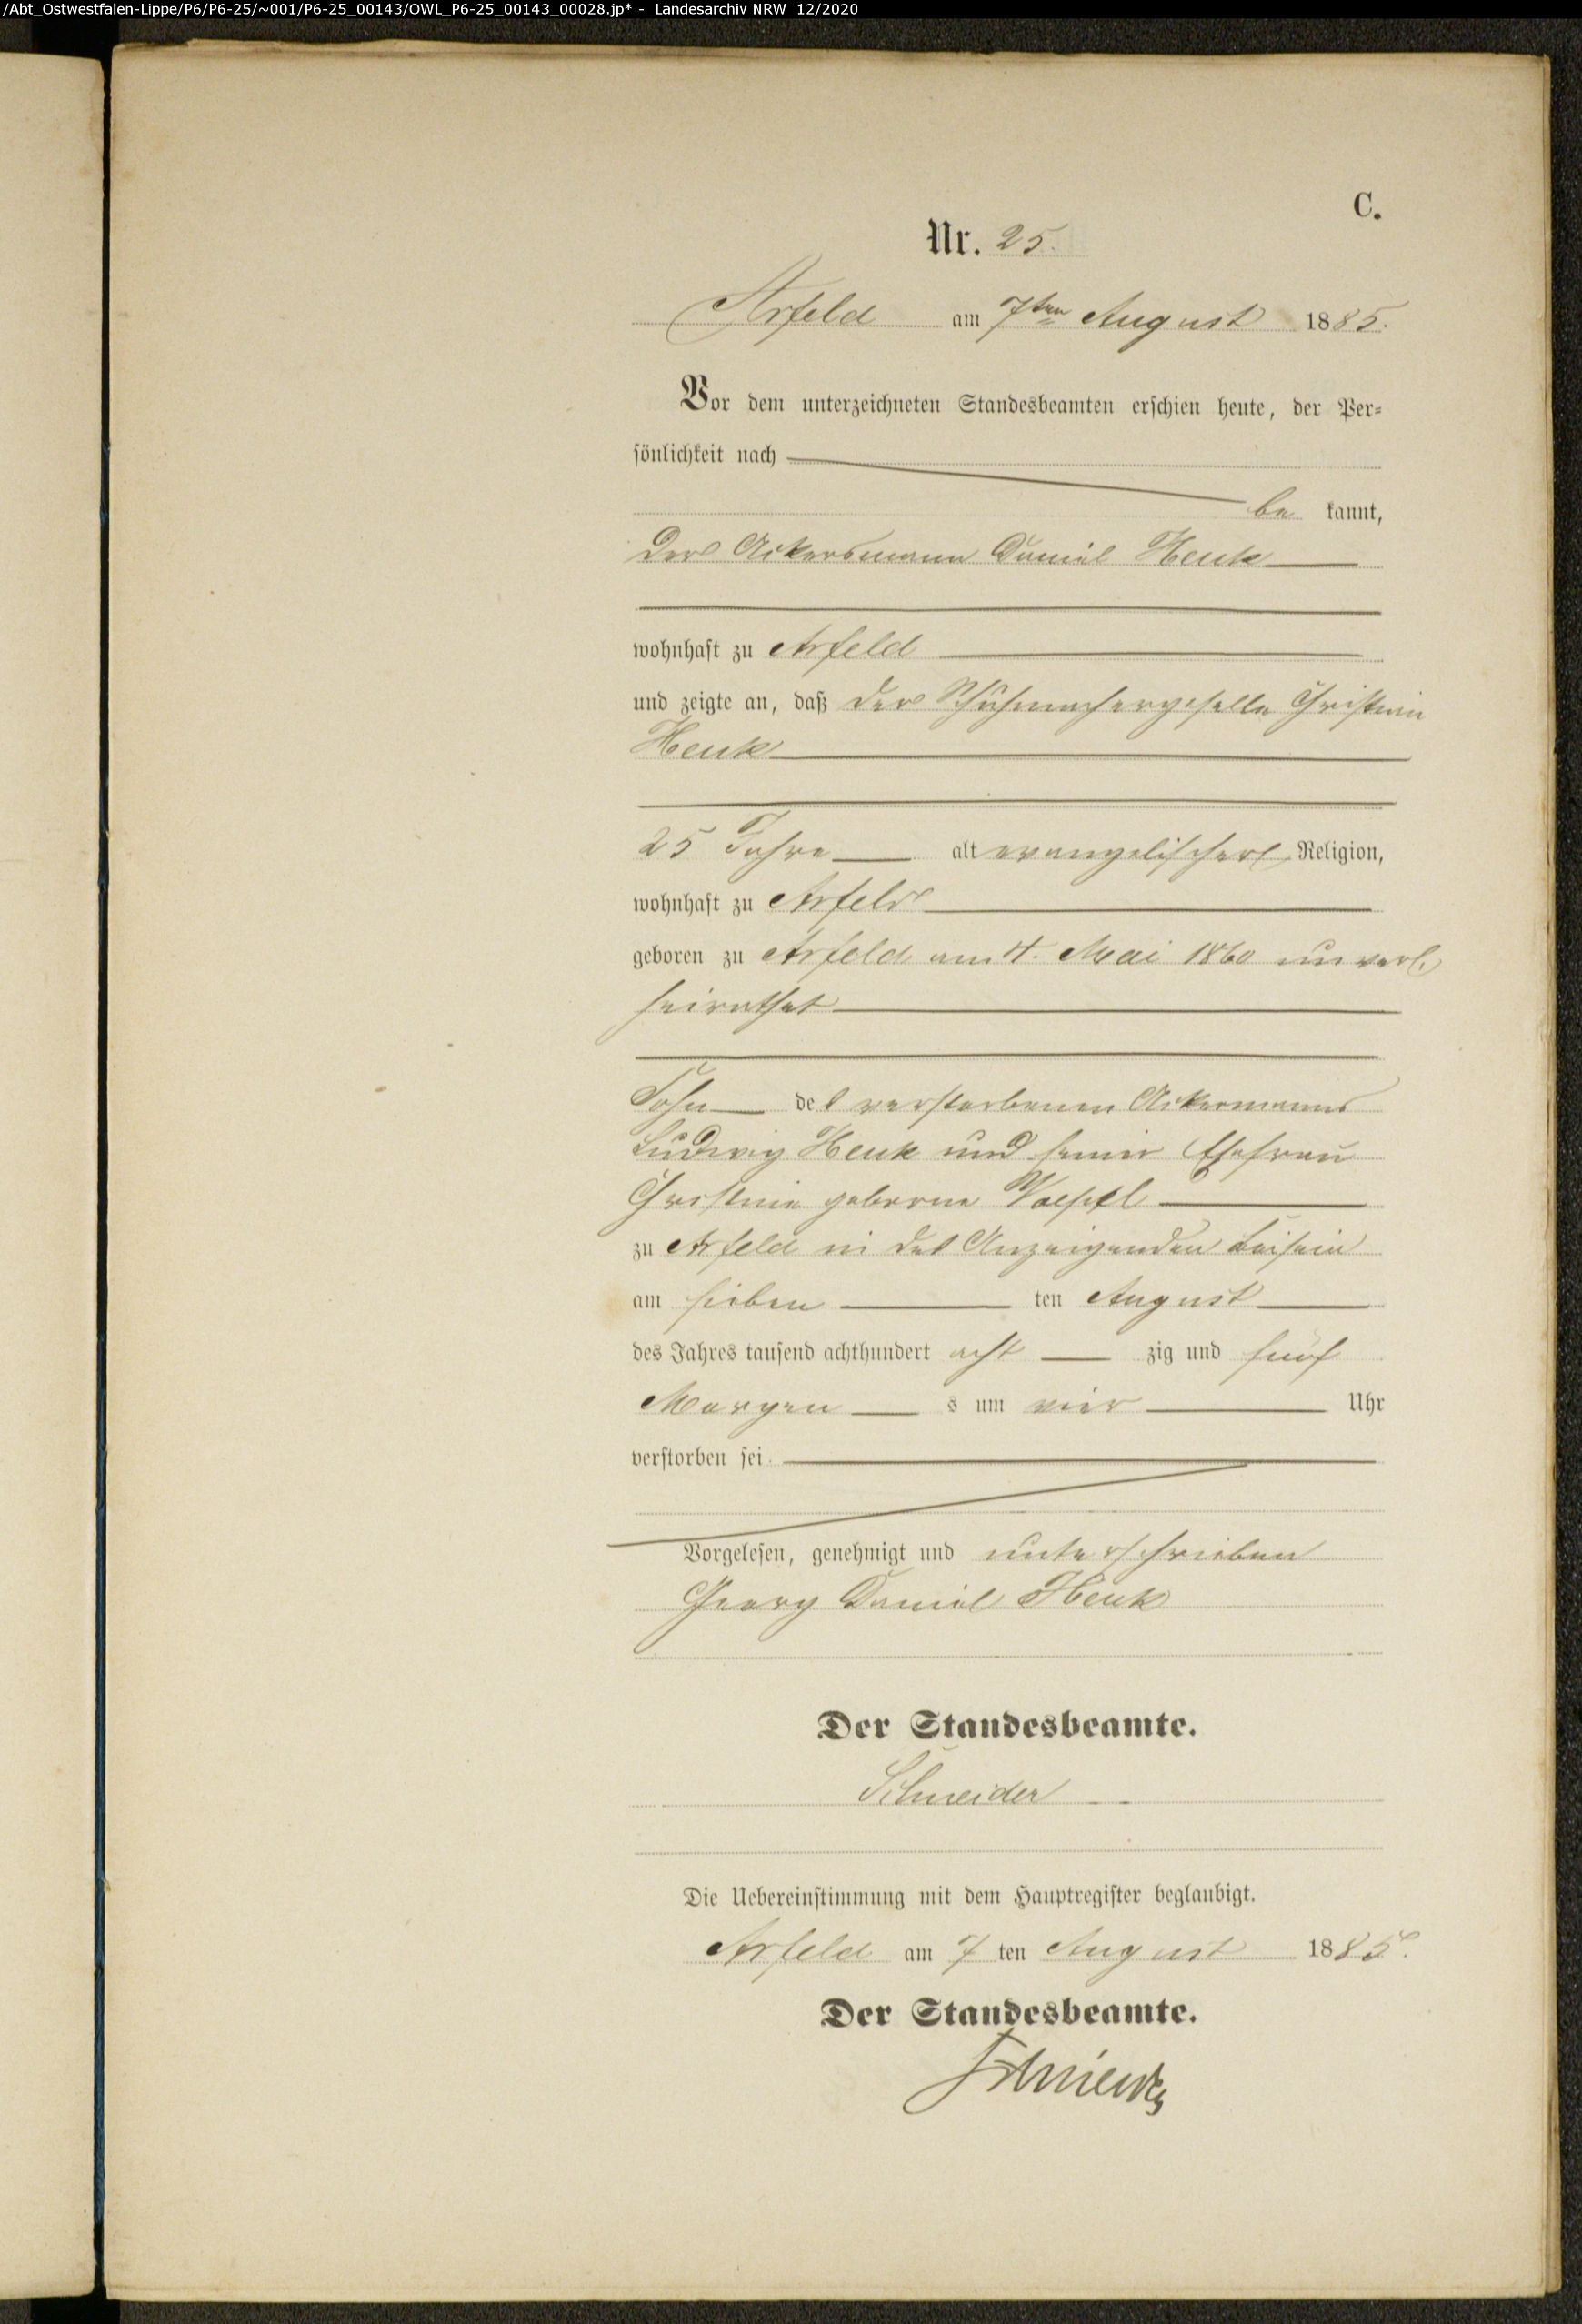 /Abt_Ostwestfalen-Lippe/P6/P6-25/~001/P6-25_00143/OWL_P6-25_00143_00028.jp* - Landesarchiv NRW 12/2020
C.
Nr. 25.
Arfeld am 7ten August 1885.
Vor dem unterzeichneten Standesbeamten erschien heute, der Per-
sönlichkeit nach
be kannt,
der Ackersmann Daniel Henk
wohnhaft zu Arfeld
und zeigte an, daß der Schuhmachergeselle Christian
Henk
25 Jahre alt evangelischer Religion,
wohnhaft zu Arfeld
geboren zu Arfeld am 4. Mai 1860 unver
heirathet
Sohn des verstorbenen Ackermanns
Ludwig Henk und seiner Ehefrau
geborne
zu Arfeld in des Anzeigenden Beisein
am sieben ten August
des Jahres tausend achthundert acht zig und fünf
Morgen s um vier Uhr
verstorben sei.
Vorgelesen, genehmigt und unterschrieben
Georg Daniel Henk
Der Standesbeamte.
Schneider
Die Uebereinstimmung mit dem Hauptregister beglaubigt.
Arfeld am 7 ten August 1885.
Der Standesbeamte.
Schneider